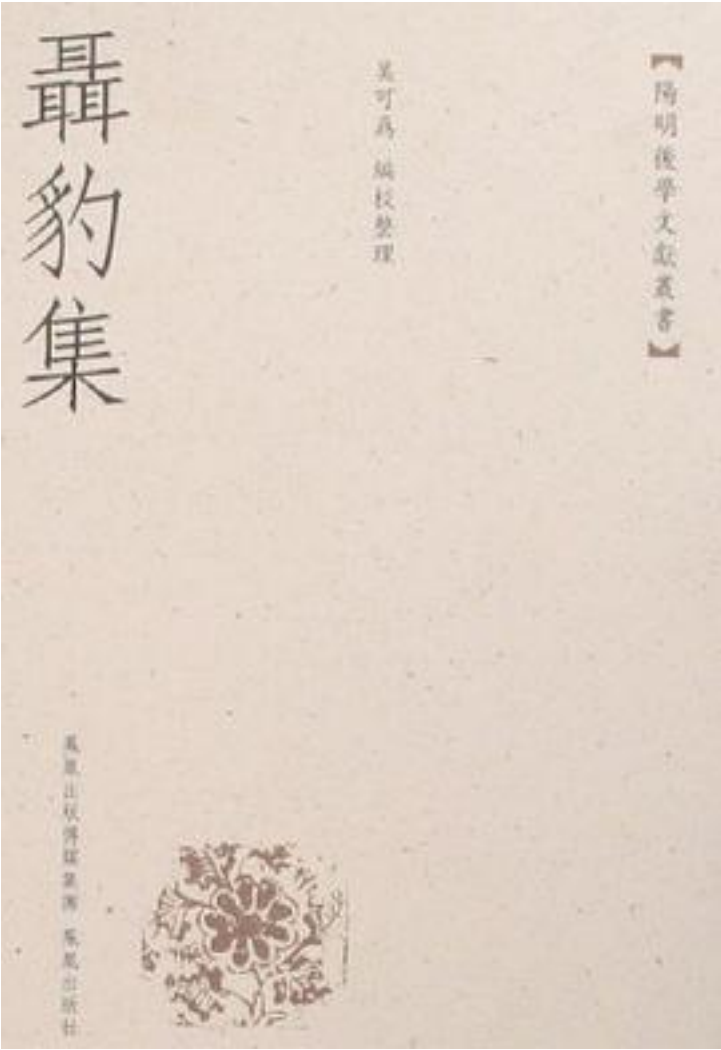 【陽明後學文獻叢書】
吴可爲 編校整理
聶豹集
鳳凰出版傳媒集團 鳳凰出版社